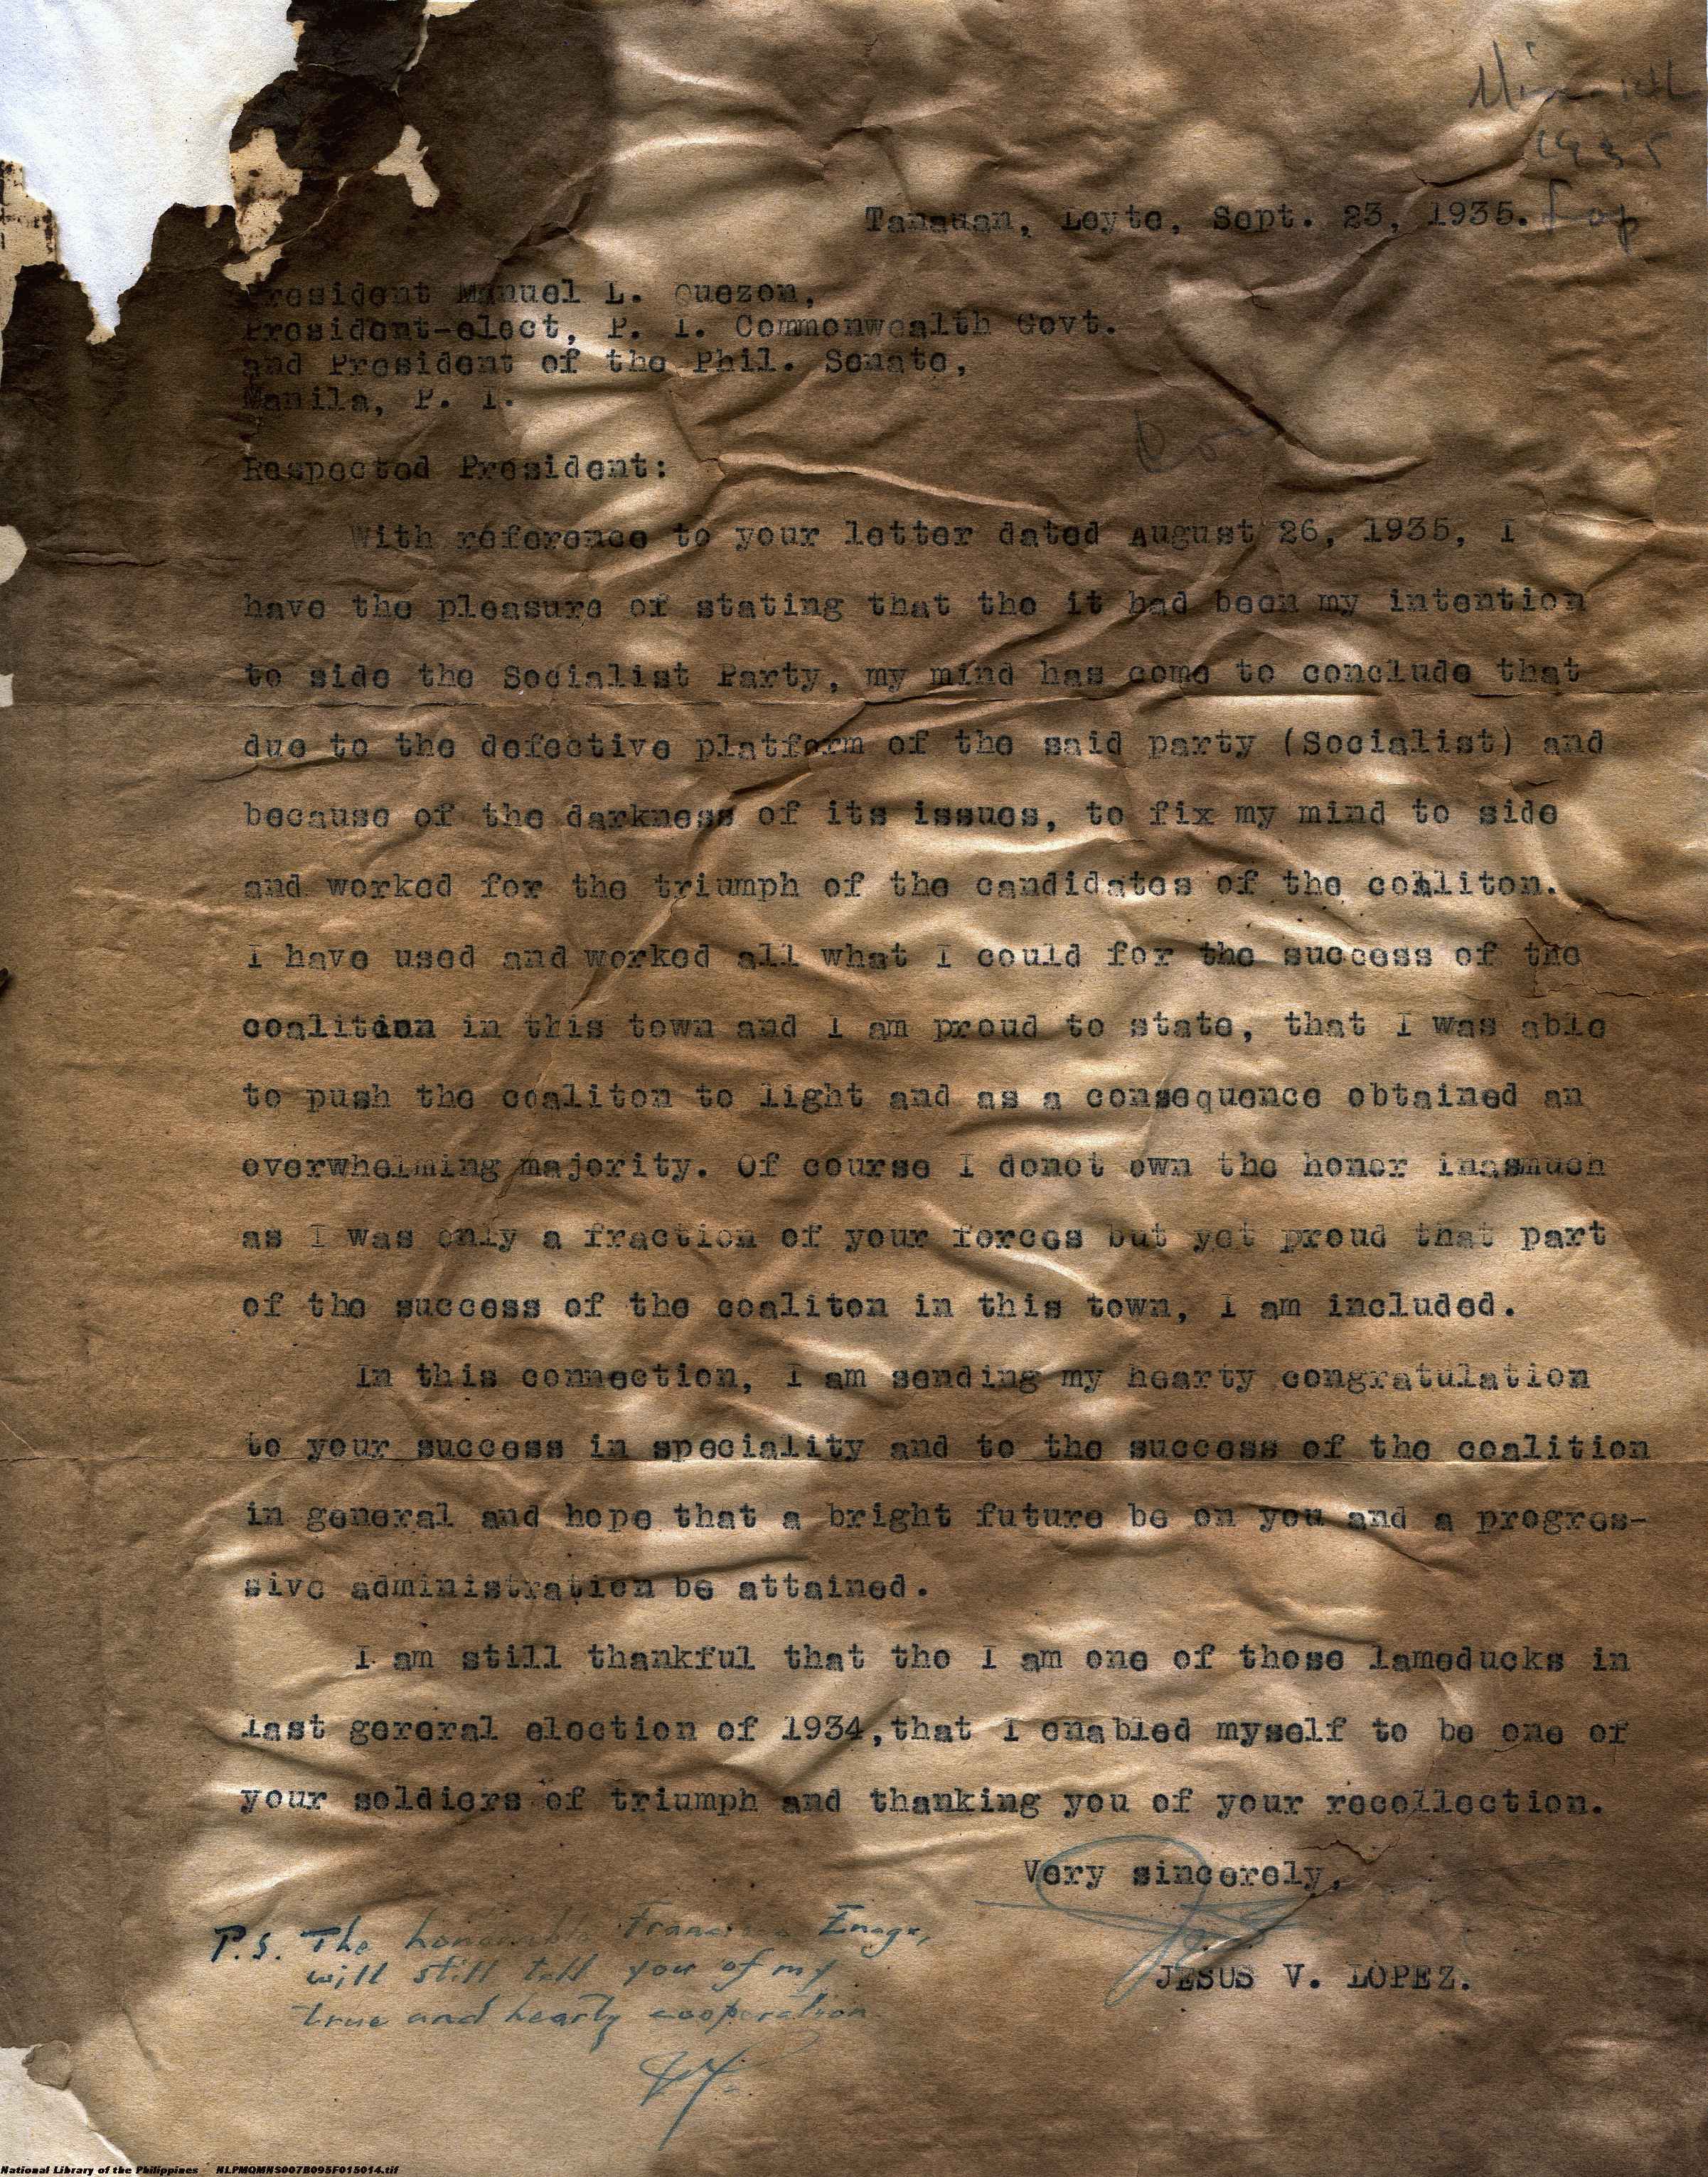 1935
Tanauan, Leyte, Sept. 23, 1935.
President Manuel L. Quezon,
President-elect, P. I. Commonwealth Govt.
and President of the Phil. Senate,
Manila, P. I.
Respected President:
With reference to your letter dated August 26, 1935, I
have the pleasure of stating that tho it had been my intention
to side the Socialist Party, my mind has come to conclude that
due to the defective platform of the said party (Socialist) and
because of the darkness of its issues, to fix my mind to side
and worked for the triumph of the candidates of the coaliton.
I have used and worked all what I could for the success of the
coalition in this town and I am proud to state, that I was able
to push the coaliton to light and as a consequence obtained an
overwhelming majority. Of course I donot own the honor inasmuch
as I was only a fraction of your forces but yet proud that part
of the success of the coaliton in this town, I am included.
In this connection, I am sending my hearty congratulation
to your success in speciality and to the success of the coalition
in general and hope that a bright future be on you and a progres-
sive administration be attained.
I am still thankful that tho I am one of those lameducks in
last gereral election of 1934,that I enabled myself to be one of
your soldiers of triumph and thanking you of your recollection.
Very sincerely,
JESUS V. LOPEZ.
P.S. The honorable Francisco Enage,
will still tell you of my
true and hearty cooperation
National Library of the Philippines NLPMQMNS007B095F015014.tif